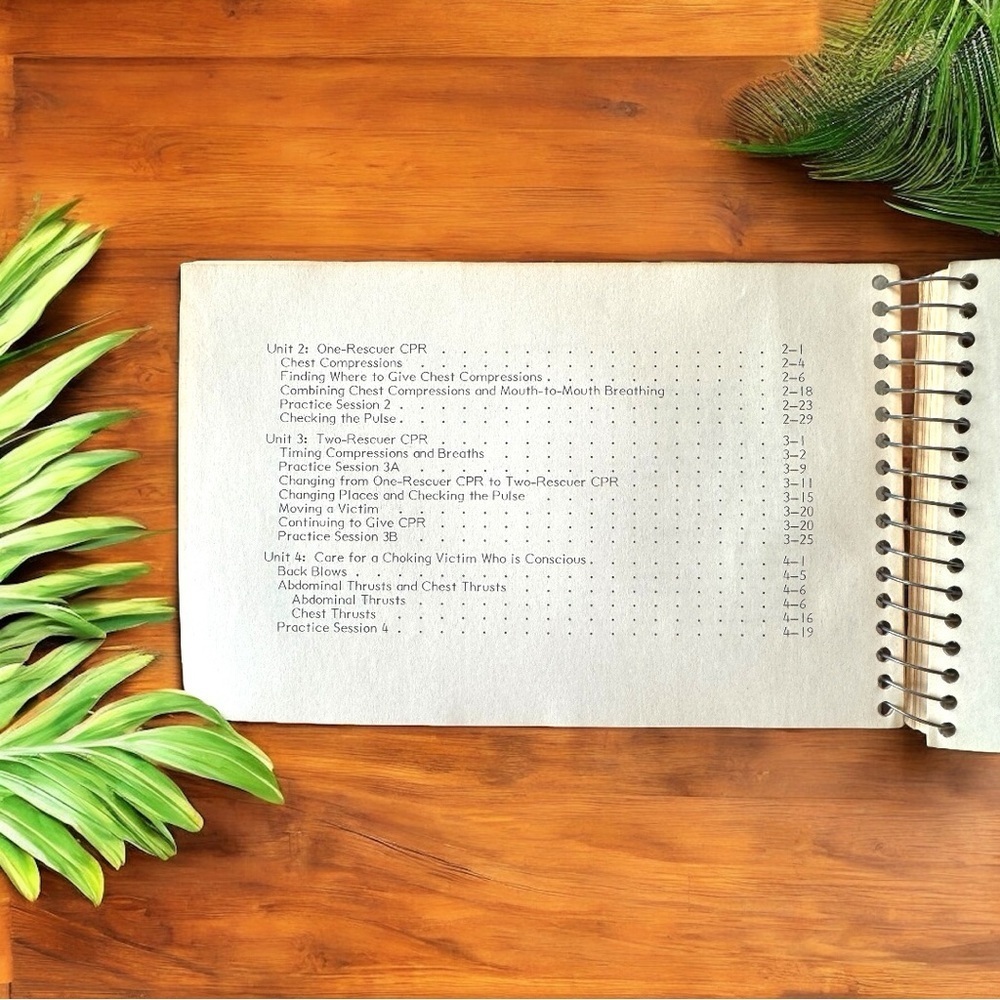 Unit 2: One-Rescuer CPR . . . . . . . . . . . . . . . . 2–1
Chest Compressions . . . . . . . . . . . . . . . . . 2–4
Finding Where to Give Chest Compressions . . . . . . . . . . . 2–6
Combining Chest Compressions and Mouth-to-Mouth Breathing . . . . . 2–18
Practice Session 2 . . . . . . . . . . . . . . . . . . 2–23
Checking the Pulse . . . . . . . . . . . . . . . . . . 2–29
Unit 3: Two-Rescuer CPR . . . . . . . . . . . . . . . . 3–1
Timing Compressions and Breaths . . . . . . . . . . . . . 3–2
Practice Session 3A . . . . . . . . . . . . . . . . . 3–9
Changing from One-Rescuer CPR to Two-Rescuer CPR . . . . . . . 3–11
Changing Places and Checking the Pulse . . . . . . . . . . . 3–15
Moving a Victim . . . . . . . . . . . . . . . . . . 3–20
Continuing to Give CPR . . . . . . . . . . . . . . . . 3–20
Practice Session 3B . . . . . . . . . . . . . . . . . 3–25
Unit 4: Care for a Choking Victim Who is Conscious . . . . . . . . . 4–1
Back Blows . . . . . . . . . . . . . . . . . . . . 4–5
Abdominal Thrusts and Chest Thrusts . . . . . . . . . . . . 4–6
Abdominal Thrusts . . . . . . . . . . . . . . . . . 4–6
Chest Thrusts . . . . . . . . . . . . . . . . . . 4–16
Practice Session 4 . . . . . . . . . . . . . . . . . . 4–19